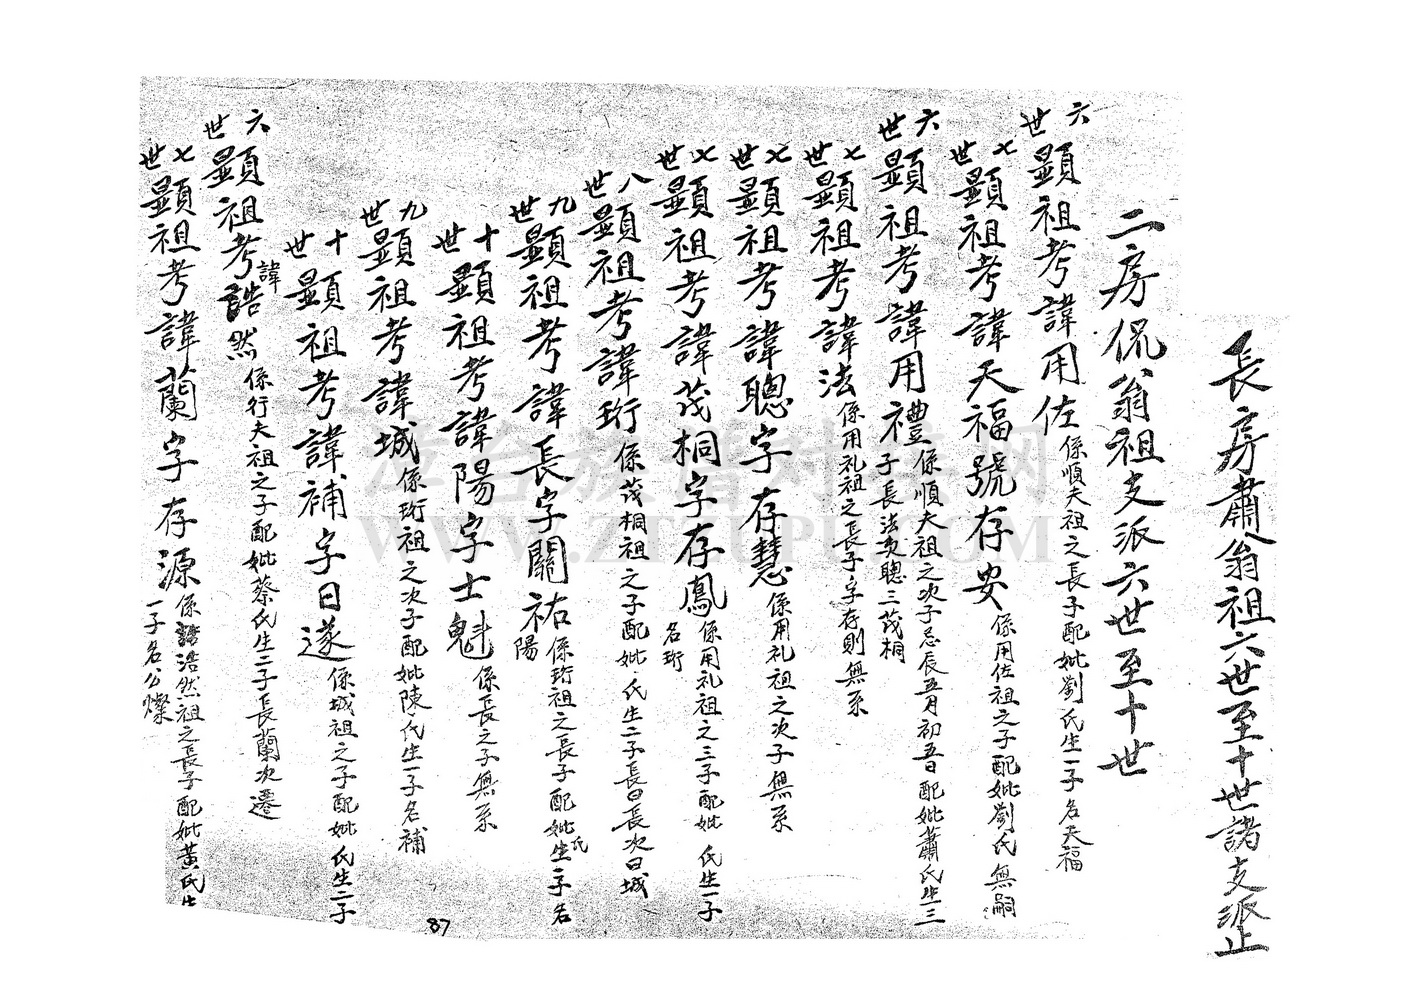 長房肅翁祖六世至十世諸支派止
二房侃翁祖支派六世至十世
六世顯祖考諱用佐係順夫祖之長子配妣劉氏生一子名天福
七世顯祖考諱天福號存安係用佐祖之子配妣劉氏無嗣
六世顯祖考諱用禮係順夫祖之次子忌辰五月初五日配妣蕭氏生三子長法次聰三茂桐
七世顯祖考諱法係用礼祖之長子字存則無系
七世顯祖考諱聰字存慧係用礼祖之次子無系
七世顯祖考諱茂桐字存鳳係用礼祖之三子配妣氏生一子名珩
八世顯祖考諱珩係茂桐祖之子配妣氏生二子長曰長次曰城
九世顯祖考諱長字關祐係珩祖之長子配妣氏生一子名陽
十世顯祖考諱陽字士魁係長之子無系
九世顯祖考諱城係珩祖之次子配妣陳氏生一子名補
十世顯祖考諱補字日遂係城祖之子配妣氏生二子
六世顯祖考諱浩然係行夫祖之子配妣蔡氏生二子長蘭次遷
七世顯祖考諱蘭字存源係浩然祖之長子配妣黃氏生一子名公燦
87
WWW.ZTZUPU.COM